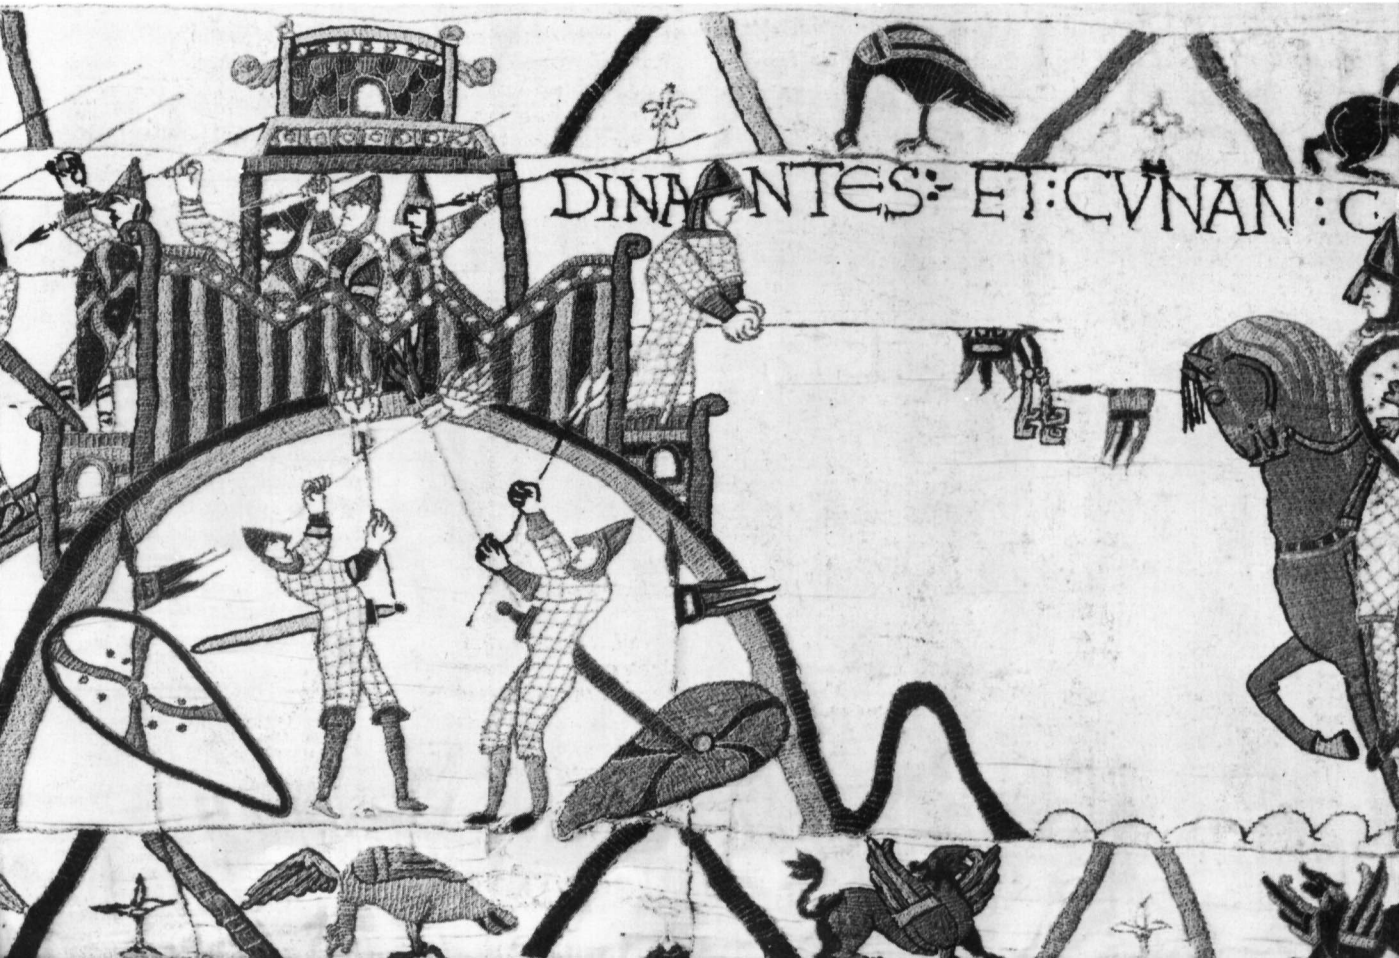 DINANTES : ET : CVNAN : C